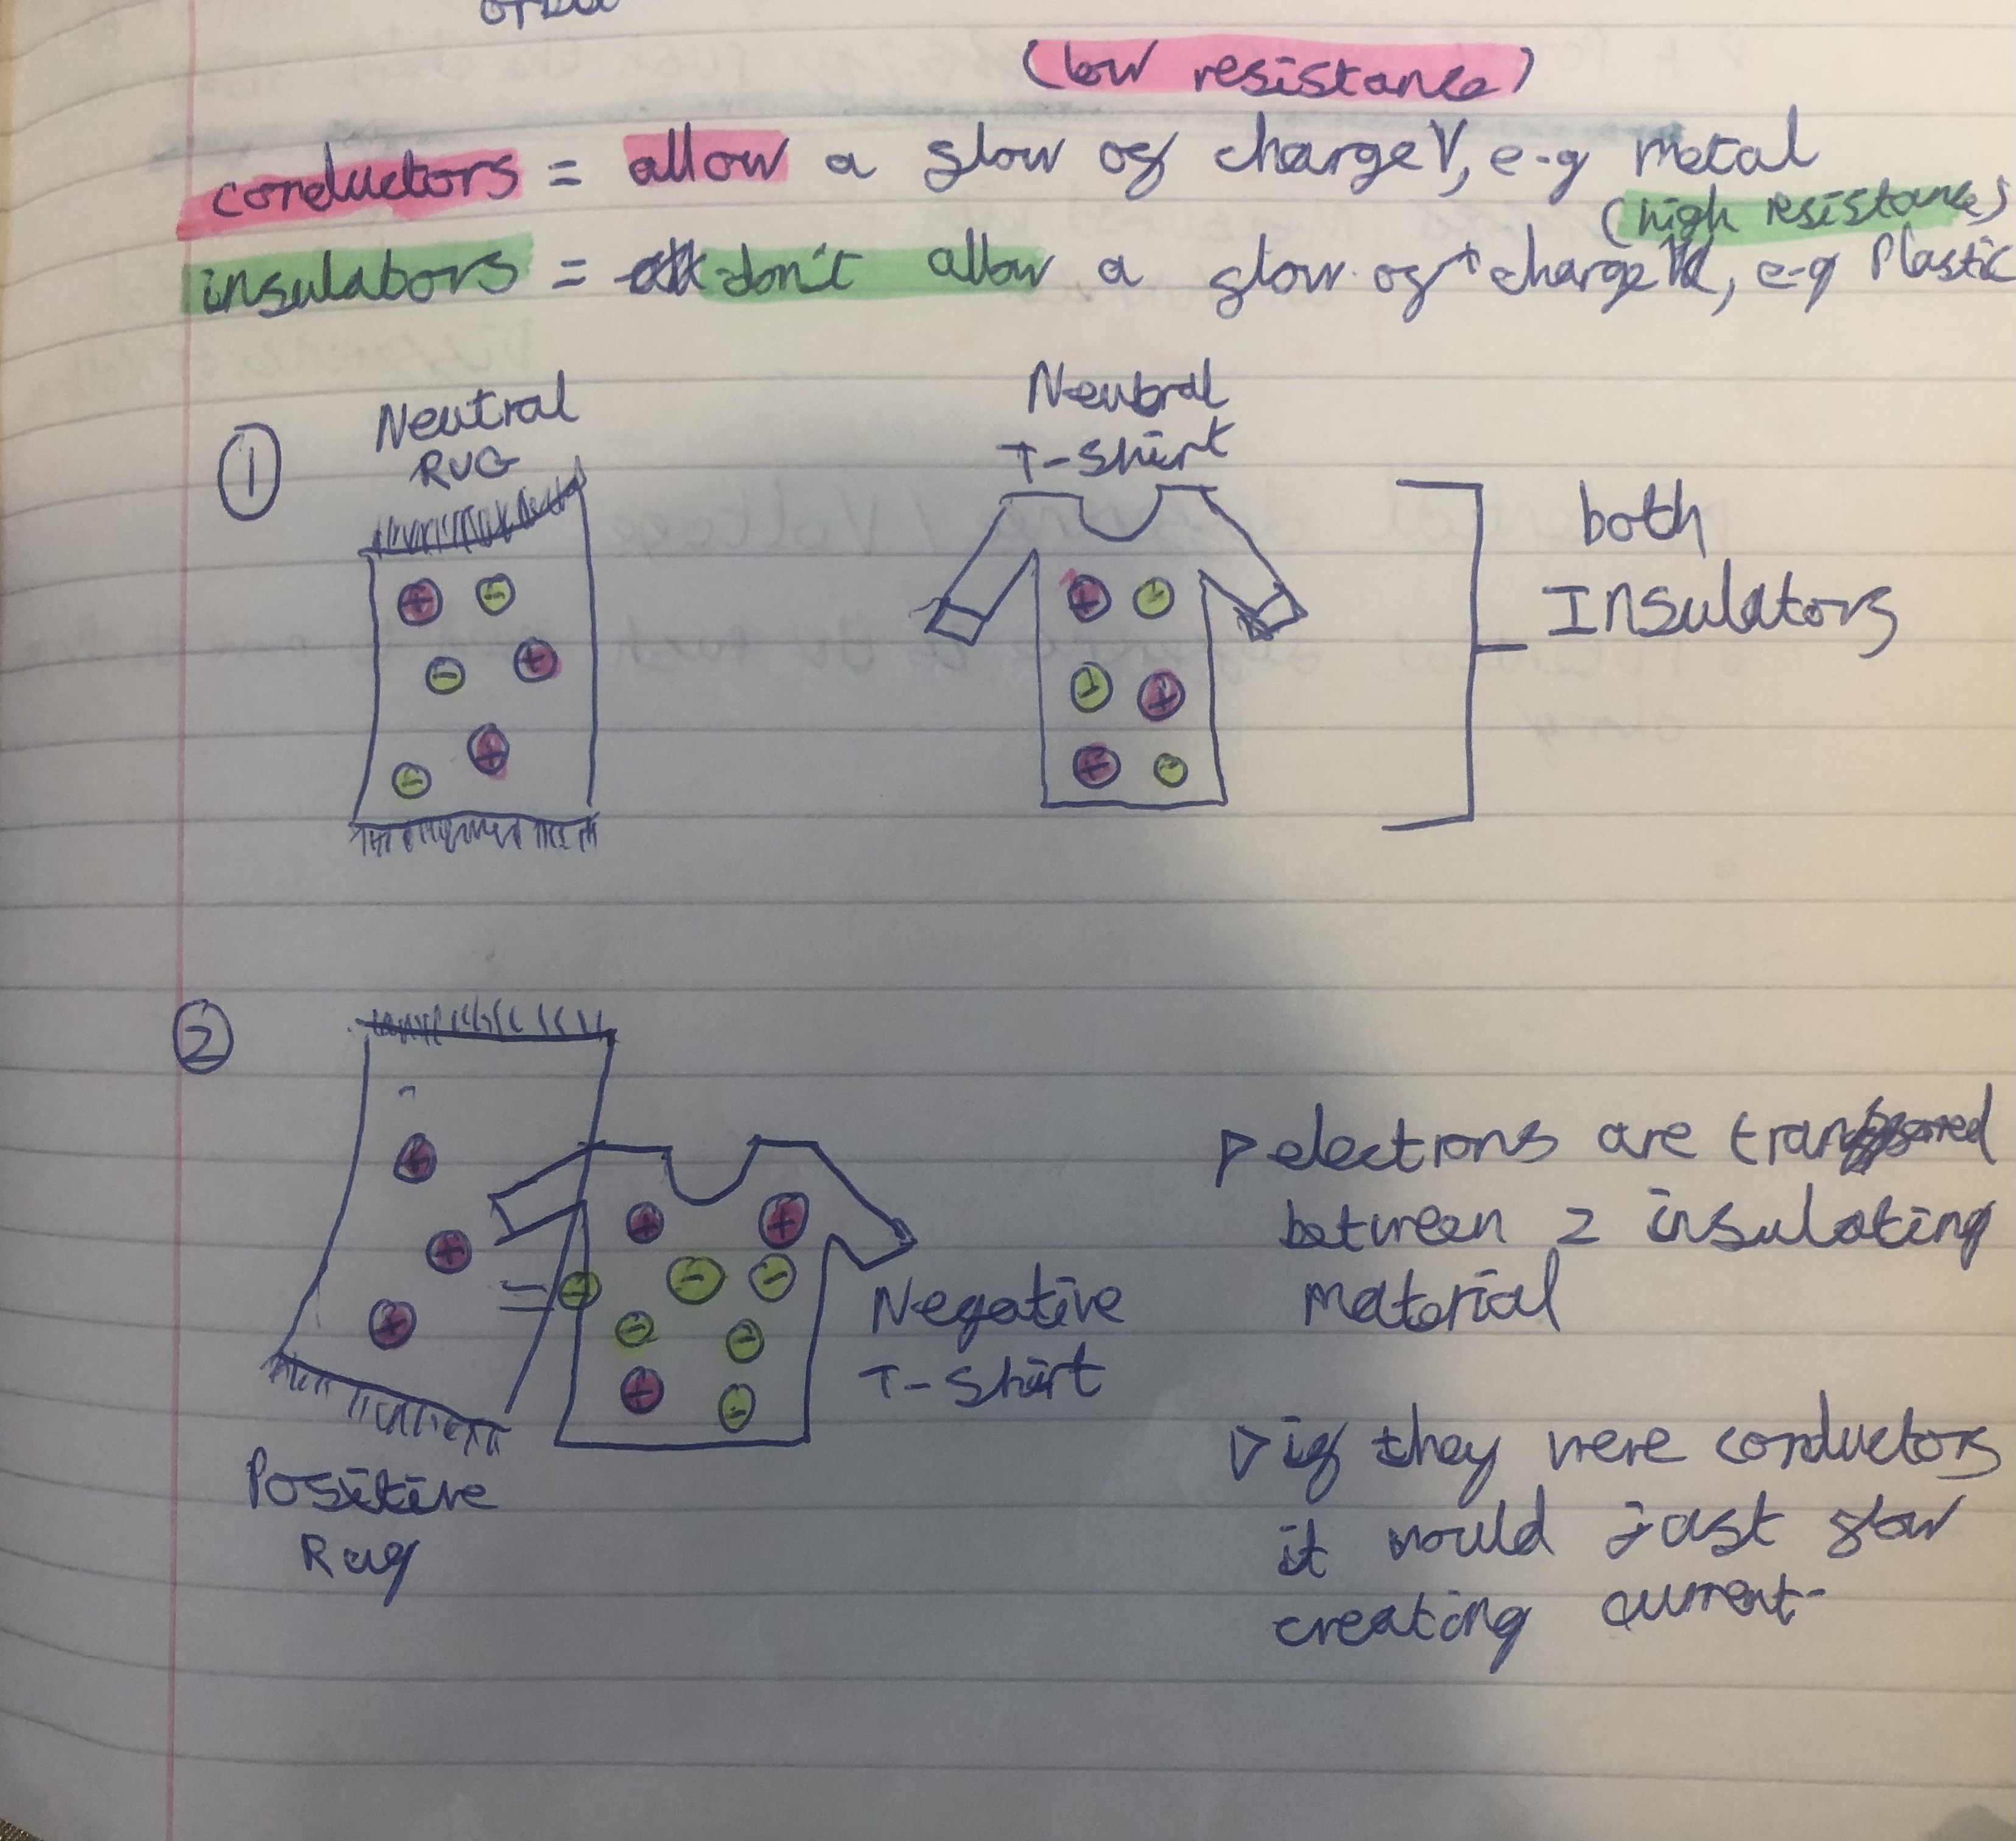 (low resistance)
conductors = allow a flow of charge, e-g metal
(high resistance)
insulators = don't allow a flow of charge, e-g Plastic
① Neutral RUG
Neutral T-Shirt
both Insulators
②
▷ electrons are transferred
between 2 insulating
material
Negative
T-Shirt
▷ if they were conductors
it would just flow
creating current-
Positive
Rug